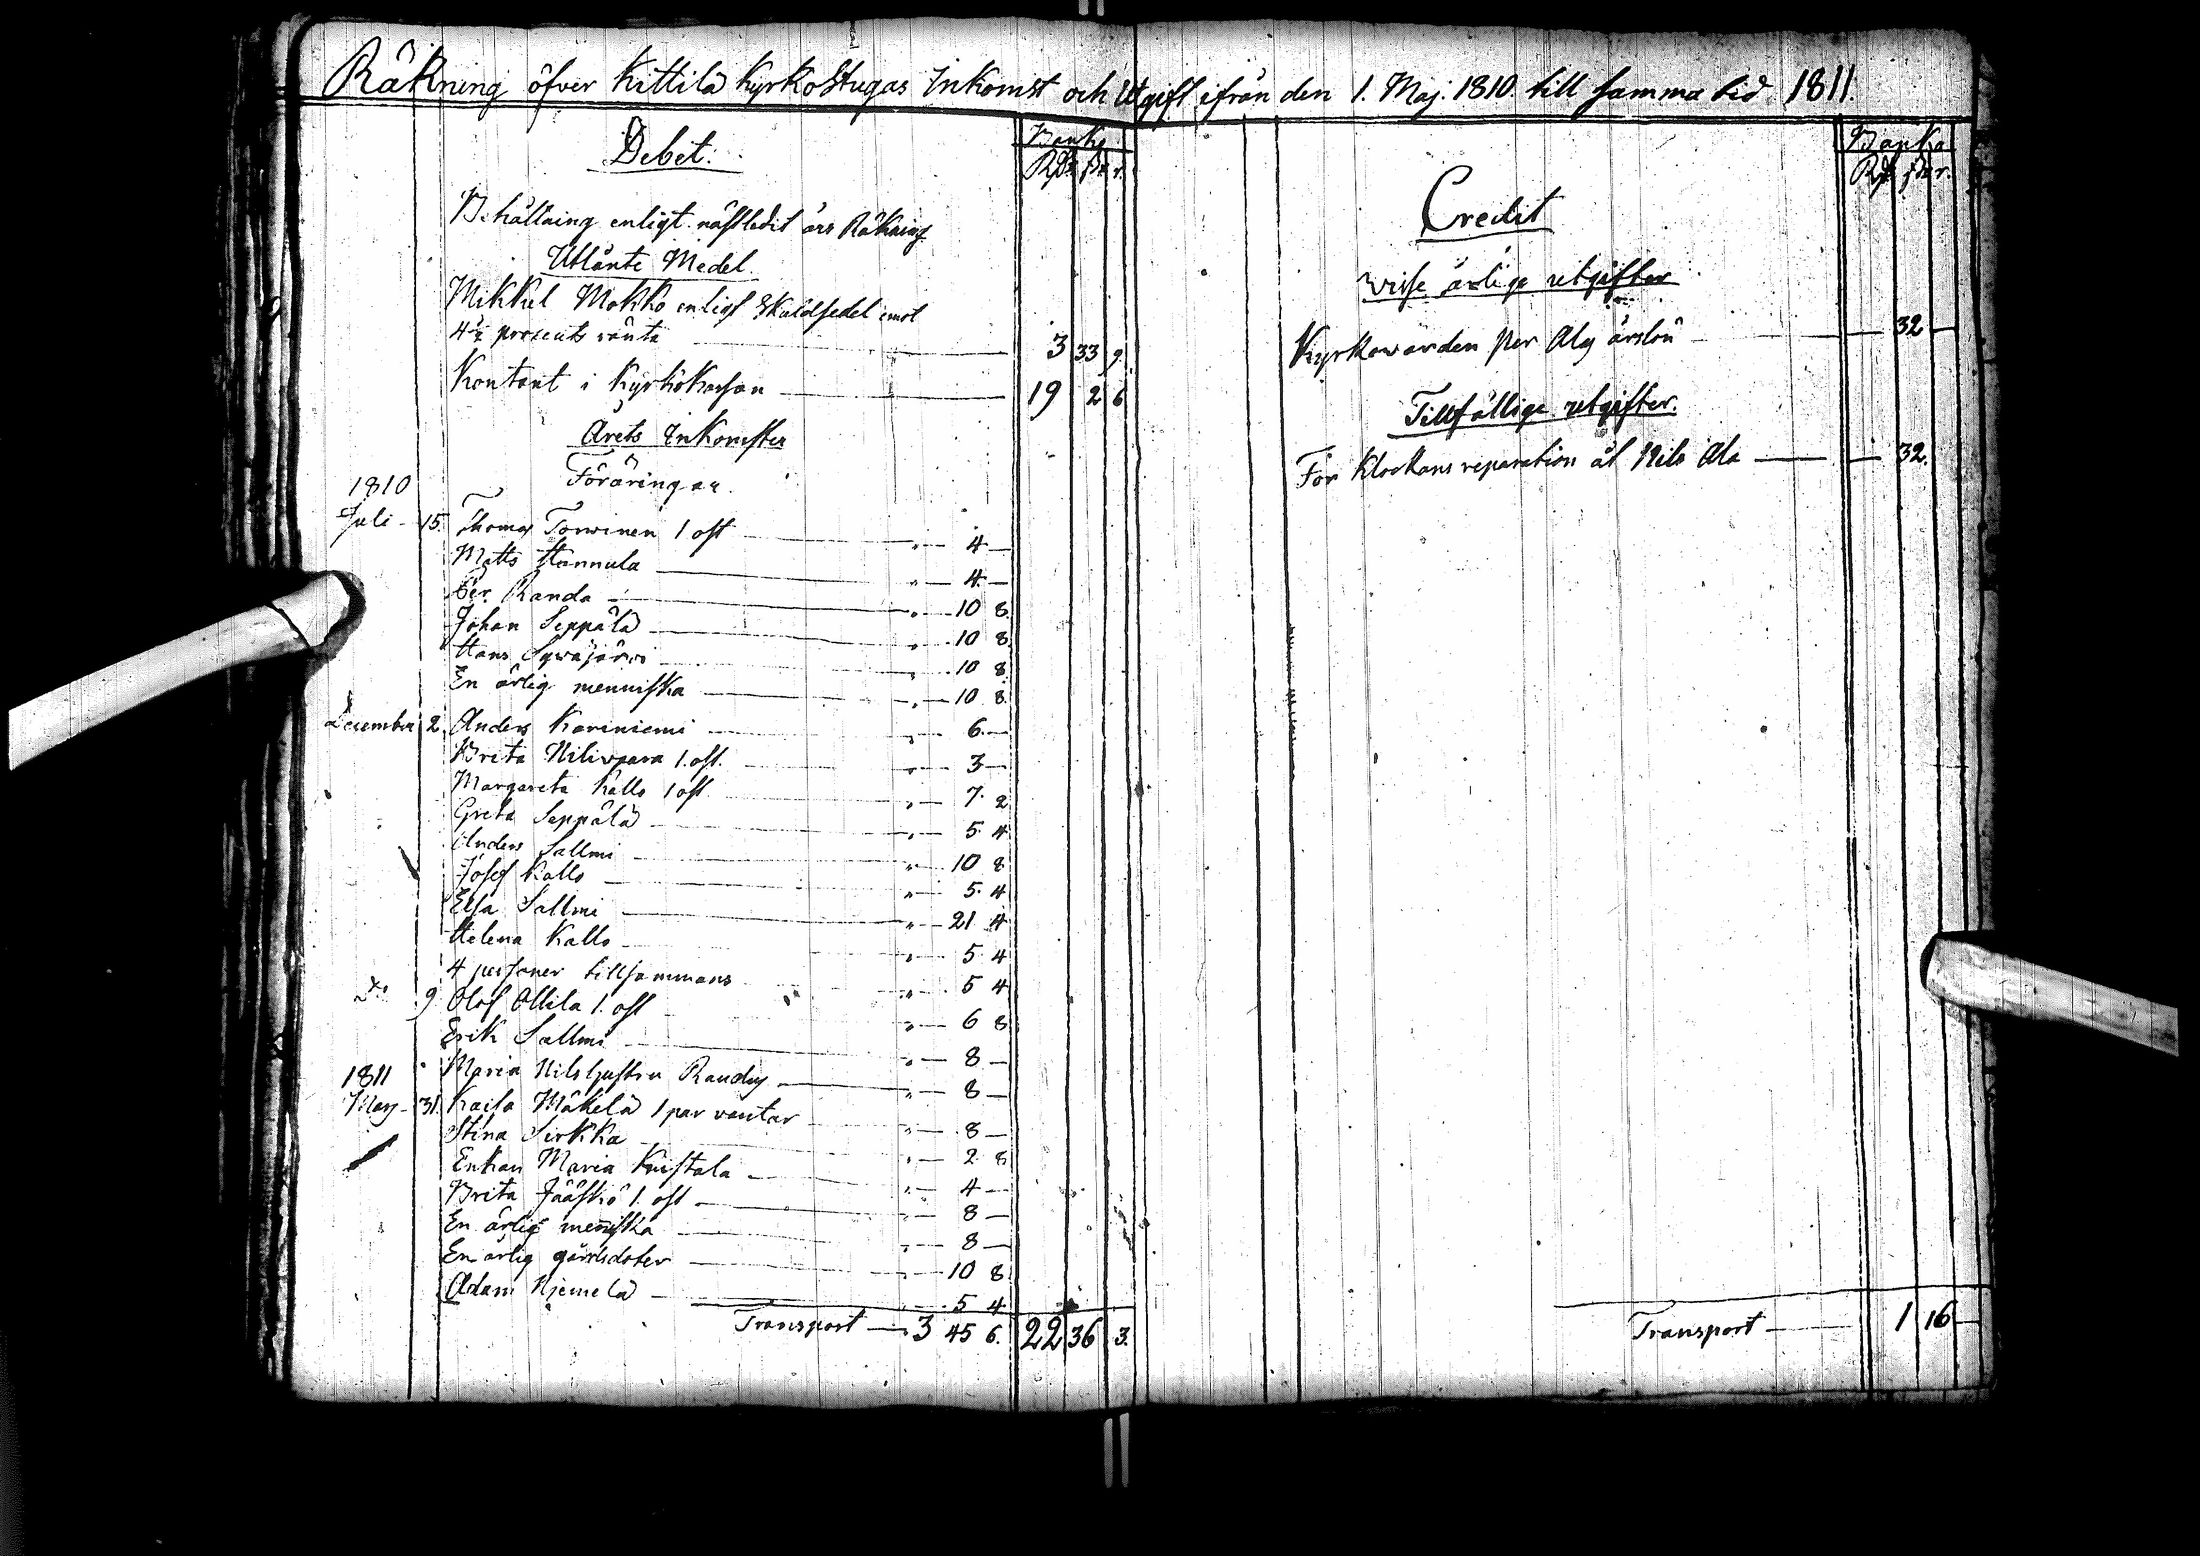 Räkning öfver Kittilä Kyrkostugas Inkomst och Utgift ifrån den 1. Maj. 1810. till samma tid 1811.
Debet.
Banko
Rdr ſk r.
Behållning enligt näſtledit års Räkning
Utlånte Medel.
Mikkel Mokko enligt Skuldſedel emot
4½ procents ränta 3 33 9
Kontant i Kyrkokaſsan 19 2 6
Årets Inkomſter
Föräringar.
1810
Juli 15. Thomas Torvinen 1 oſt „ 4 —
Matts Hannula „ 4 —
Per Randa „ 10 8.
Johan Seppälä „ 10 8
Hans Sywäjärwi „ 10 8
En ärlig menniſka „ 10 8.
December 2. Anders Kariniemi „ 6 —
Brita Nilivaara 1. oſt. „ 3 —
Margareta Kallo 1 oſt „ 7. 2
Greta Seppälä „ 5 4
Anders Sallmi „ 10 8
Josef Kallo „ 5. 4
Elsa Sallmi „ 21 4
Helena Kallo „ 5 4
4 perſoner tillſammans „ 5 4
Do 9 Olof Ollila 1. oſt „ 6 8
Erik Sallmi „ 8 —
Maria Nils Huſtru Randa „ 8 —
1811
May 31. Kaisa Mäkelä 1 par vantar „ 8 —
Stina Sirkka „ 2 8
Enkan Maria „ 4 —
Brita Jääſkö 1. oſt „ 8 —
En ärlig menniſka „ 8 —
En ärlig gårdsdoter „ 10 8
Adam Niemelä „ 5 4
Transport 3 45 6. 22 36 3.
Credit
Banko
Rdr ſk r.
Wiſse årlige utgifter
Kyrkowärden Per Alaj årslön — 32 —
Tillfällige utgifter.
För Klockans reparation åt Nils Ala — 32.
Transport 1 16 —